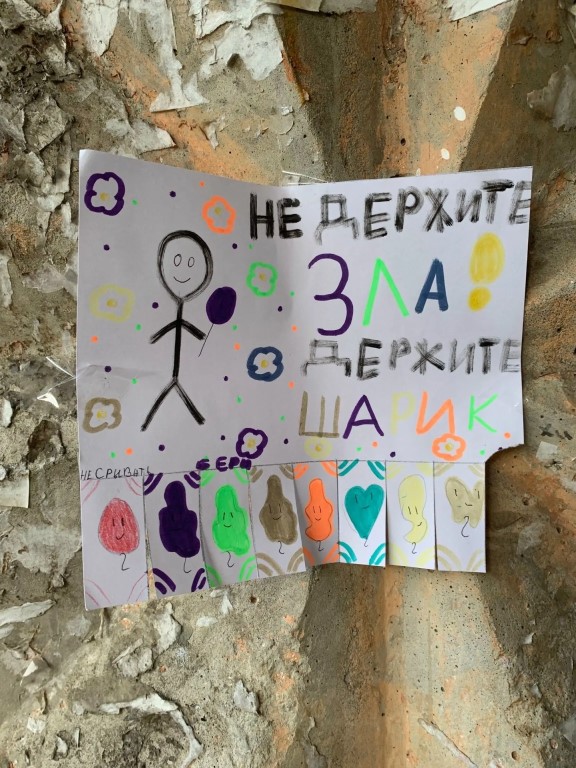 НЕ ДЕРЖИТЕ
ЗЛА!
ДЕРЖИТЕ
ШАРИК
НЕ СРИВАТЬ
БЕРИ